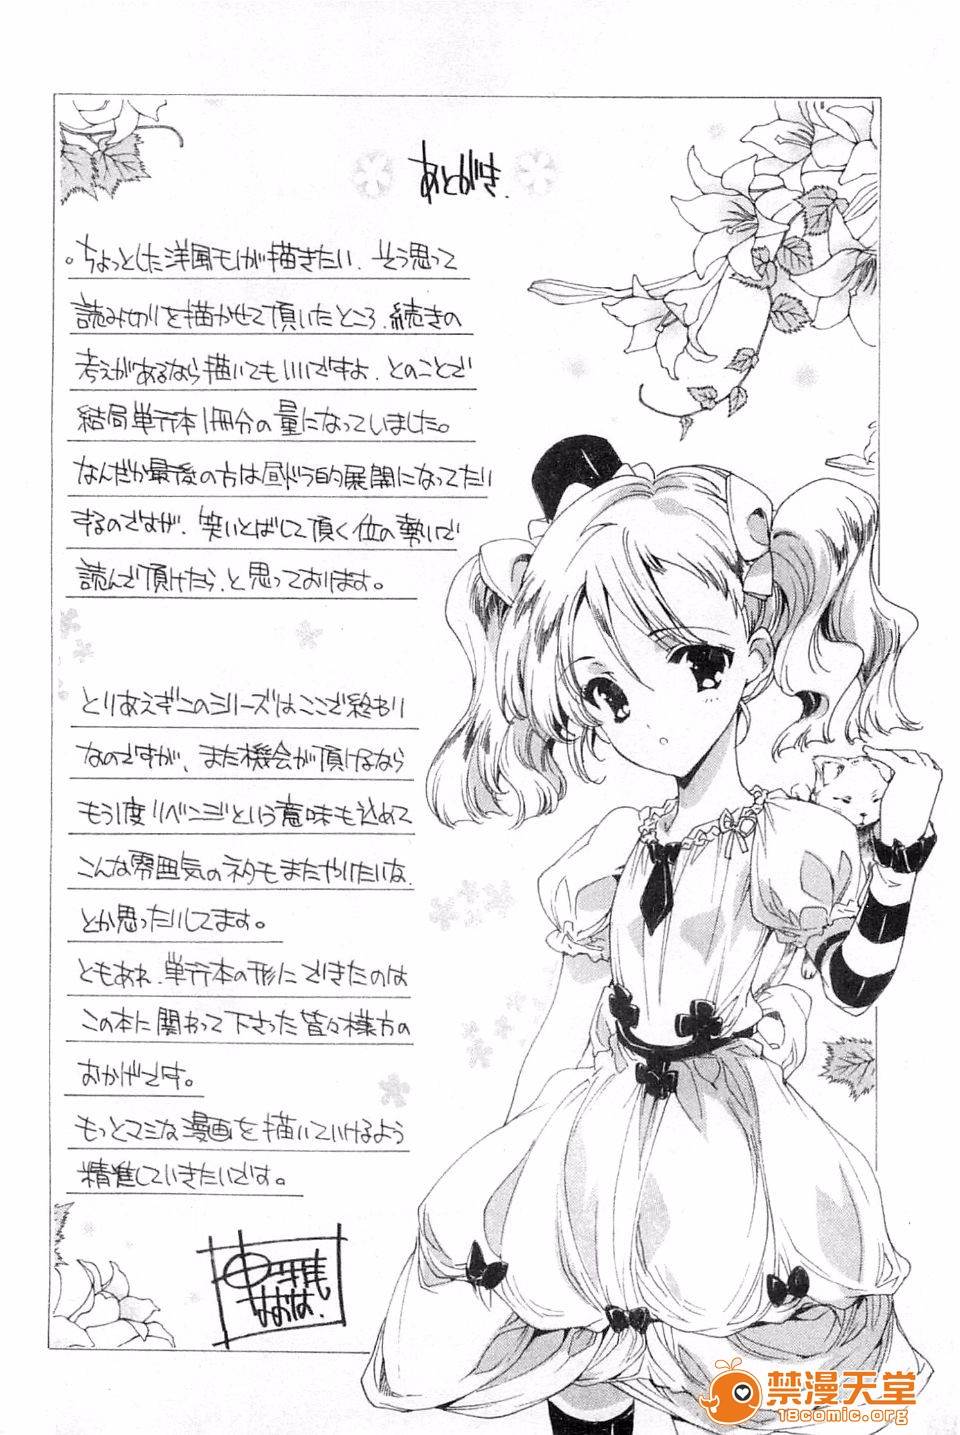 あとがき.
。ちょっとした洋風モノが描きたい、そう思って
読みきりを描かせて頂いたところ、続きの
考えがあるなら描いてもいいですよ、とのことで
結局単行本1冊分の量になっていました。
なんだか最後の方は昼ドラ的展開になってたり
するのですが、笑いとばして頂く位の勢いで
読んで頂けたら、と思っております。
とりあえずこのシリーズはここで終わり
なのですが、また機会が頂けるなら
もう1度リベンジという意味も込めて
こんな雰囲気のネタもまたやりたいな、
とか思ったりしてます。
ともあれ、単行本の形にできたのは
この本に関わって下さった皆々様方の
おかげです。
もっとマシな漫画を描いていけるよう
精進していきたいです。
禁漫天堂
18comic.org